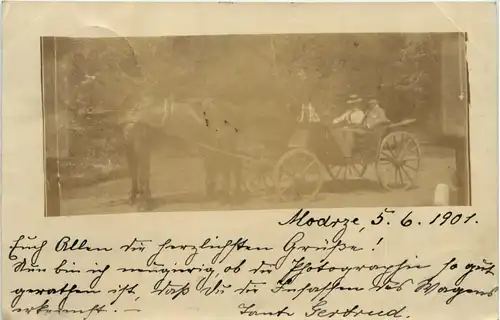 Modrze, 5. 6. 1901.
Euch Allen die herzlichsten Grüße!
Nun bin ich neugierig, ob die Photographie so gut
gerathen ist, daß du die Insassen des Wagens
erkennst. —
Tante Gertrud.